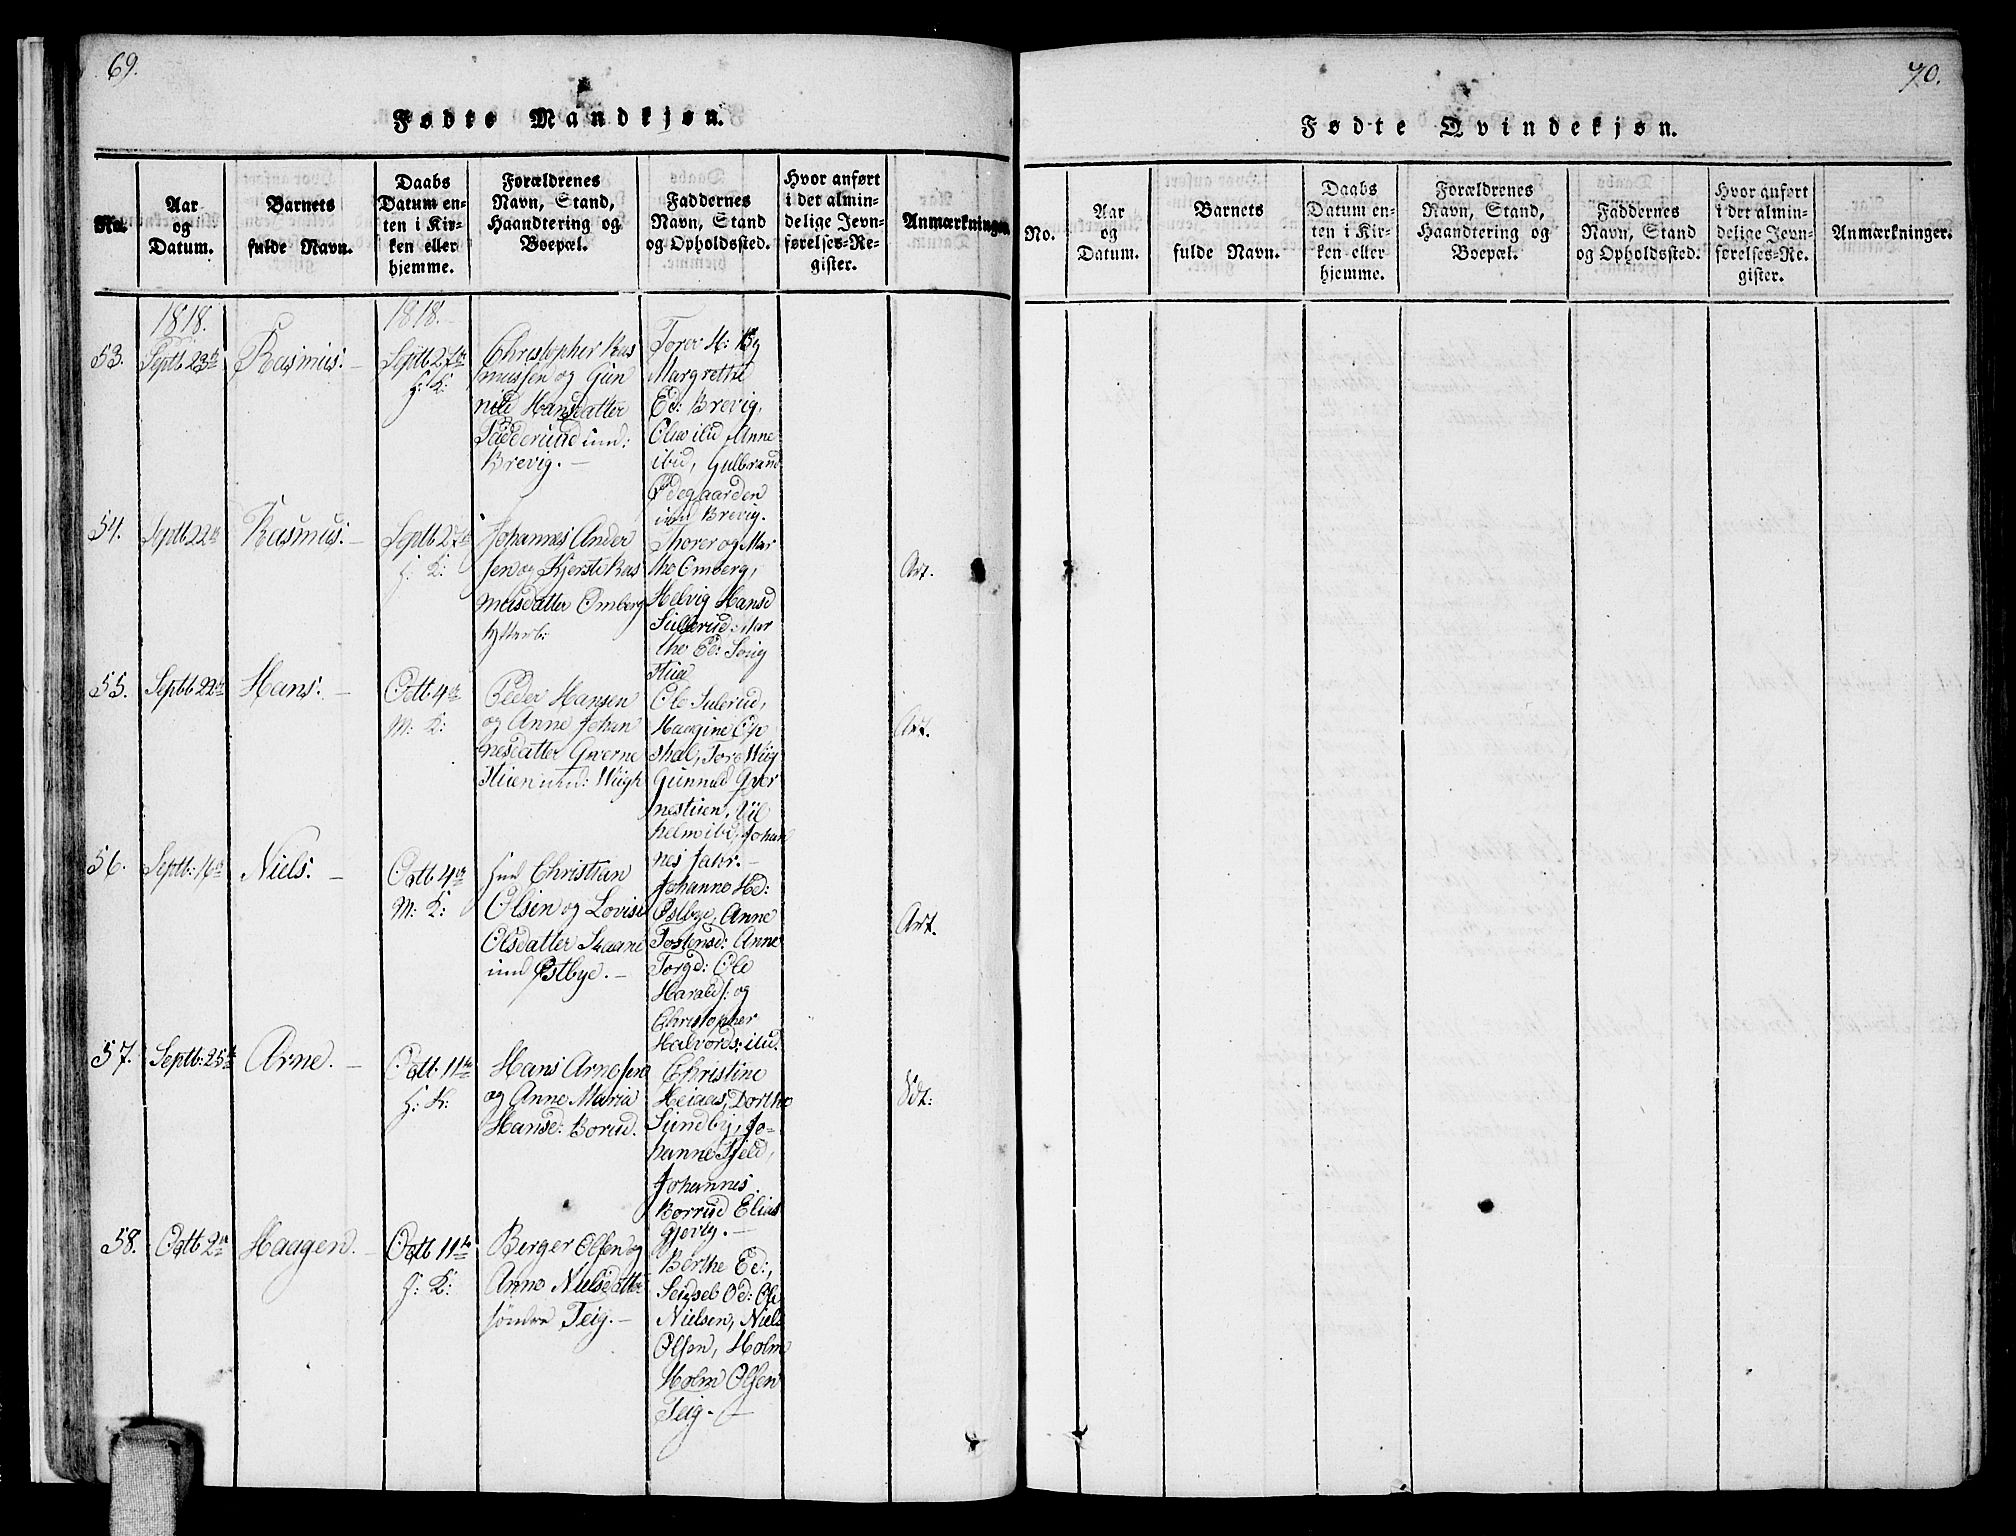 69.
Fødte Mandkjøn.
No.
Aar
og
Datum.
Barnets
fulde Navn.
Daabs
Datum en-
ten i Kir-
ken eller
hjemme.
Forældrenes
Navn, Stand,
Haandtering og
Boepæl.
Faddernes
Navn, Stand
og Opholdssted.
Hvor anført
i det almin-
delige Jevn-
førelses-Re-
gister.
Anmærkninger.
1818.
1818.
53.
Septb 23de
Rasmus:
Septb 27de
H: K:
Christopher Ras
mussen og Gun
nild Hansdatter
und:
Brevig.
Torer H: By
Margrethe
Ed: Brevig,
Anne
ibid, Gulbrand
Ødegaarden
und Brevig.
54.
Septb 22de
Rasmus:
Septb 27de
H: K:
Johannes Ander
sen og Kjersti Ras
musdatter Omberg
Thorer og Mar
the Omberg,
Helvig Hansd
Sullerud: Mar
the Ed:
Art.
55.
Septbb 22de
Hans:
Octb 4de
M: K:
Peder Hansen
og Anne Johan
nesdatter Gverne
stuen und: Wiigh
Ole Sulerud,
Haagine Op
shal, Tore Wiig
Gunnild Gver
nestuen, Vil
helm ibd, Johan
nes
Art.
56.
Septb: 16de
Niels:
Octb 4de
M: K:
Christian
Olsen og Lovise
Olsdatter
und Østbye.
Johanne Hd:
Østbye, Anne
Tostensd: Anne
Torgd: Ole
Harald: og
Christopher
Halvords: ibid.
Art.
57.
Septb: 25de
Arne.
Octb 11te
H: K:
Hans Arnesen
og Anne Maria
Hansd: Borud.
Christine
Heiaas, Dorthe
Sundby, Jo-
hanne Fjeld,
Johannes
Borrud Elias
Gjerby.
58.
Octb 2de
Haagen.
Octb 11te
H: K:
Berger Olsen og
Anne Nielsdatter
søndre Teig.
Berthe Ed:,
Seigsel Od: Ole
Nielsen, Niels
Olsen, Holm
Holm Olsen
Teig.
70.
Fødte Qvindekjøn.
No.
Aar
og
Datum.
Barnets
fulde Navn.
Daabs
Datum en-
ten i Kir-
ken eller
hjemme.
Forældrenes
Navn, Stand,
Haandtering og
Boepæl.
Faddernes
Navn, Stand
og Opholdssted.
Hvor anført
i det almin-
delige Jevn-
førelses-Re-
gister.
Anmærkninger.